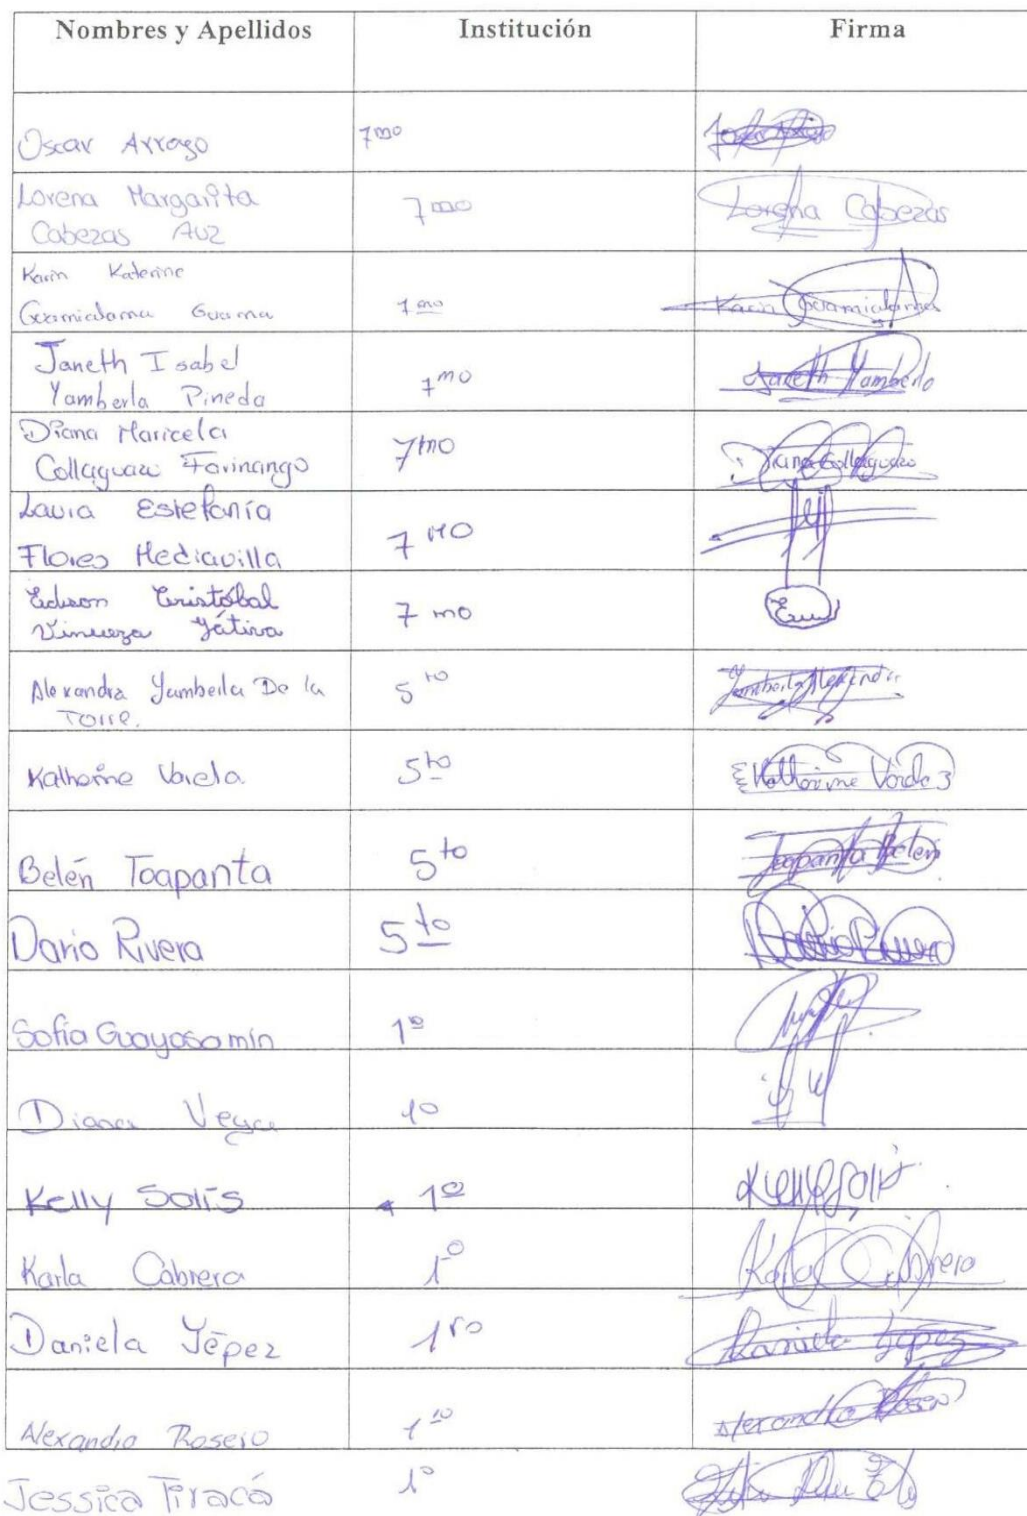 Nombres y Apellidos Institución Firma
Oscar Arroyo 7mo
Lorena Margarita
Cabezas Auz 7mo Lorena Cabezas
Karin Katerine
Guamialama Guama 7mo Karin Guamialama
Janeth Isabel
Yamberla Pineda 7mo Janeth Yamberla
Diana Maricela
Collaguazo Farinango 7mo Diana Collaguazo
Lauia Estefanía
Flores Mediavilla 7mo
Edison Cristóbal
Vinueza Játiva 7mo
Alexandra Yamberla De la
Torre. 5to Yamberla Alexandra
Katherine Varela 5to Katherine Varela
Belén Toapanta 5to Toapanta Belén
Dario Rivera 5to Dario Rivera
Sofía Guayasamín 1o
Diana Vega 1o
Kelly Solís 1o Kelly Solís
Karla Cabrera 1o Karla Cabrera
Daniela Yépez 1ro Daniela Yépez
Alexandra Rosero 1ro Alexandra Rosero
Jessica Piracá 1o